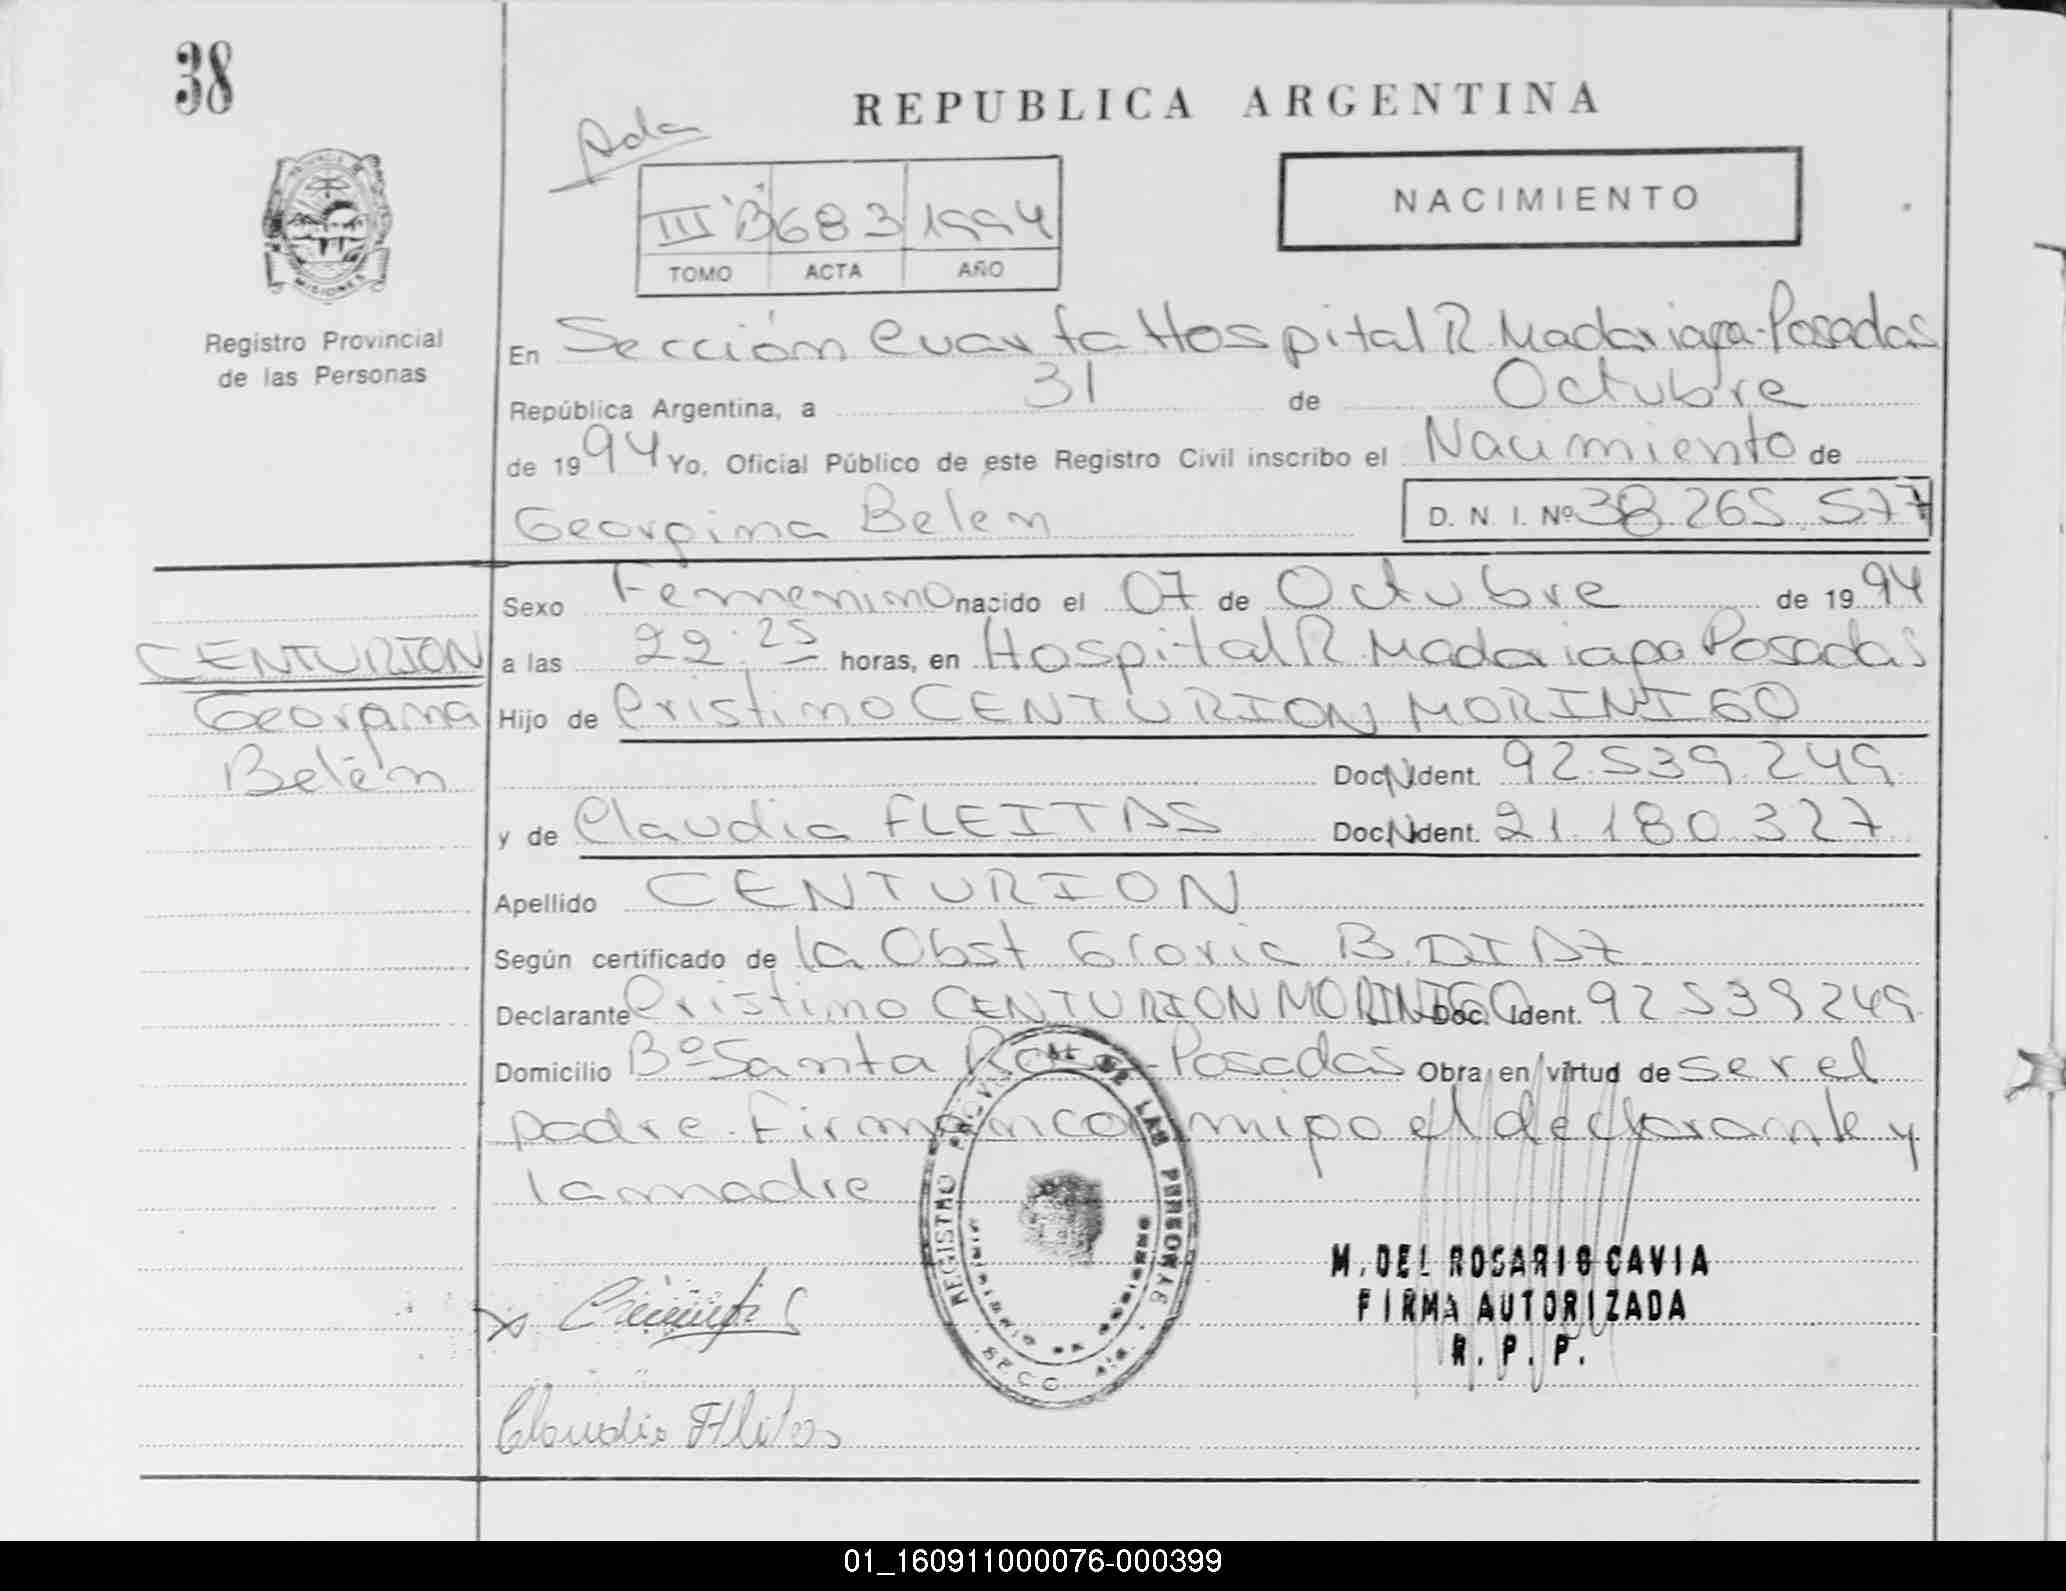 38
REPUBLICA ARGENTINA
NACIMIENTO
III B 683 1994
TOMO ACTA AÑO
MISIONES
Registro Provincial
de las Personas
En Sección Cuarta Hospital R. Madariaga-Posadas
República Argentina, a 31 de Octubre
de 1994 Yo, Oficial Público de este Registro Civil inscribo el Nacimiento de
Georgina Belen D. N. I. Nº 38.265.577
Sexo Femenino nacido el 07 de Octubre de 1994
CENTURION
a las 22:25 horas, en Hospital R. Madariaga Posadas
Georgina
Hijo de Cristino CENTURION MORINIGO
Belén
Doc. Ident. 92.539.249
y de Claudia FLEITAS Doc. Ident. 21.180.327
Apellido CENTURION
Según certificado de la Obst Gloria B. DIAZ
Declarante Cristino CENTURION MORINIGO Doc. Ident. 92 539 249
Domicilio Bº Santa Rosa - Posadas Obra en virtud de ser el
padre. Firman conmigo el declarante y
la madre
REGISTRO PROVINCIAL DE LAS PERSONAS
M. DEL ROSARIO CAVIA
FIRMA AUTORIZADA
R. P. P.
Claudia Fleitas
01_160911000076-000399